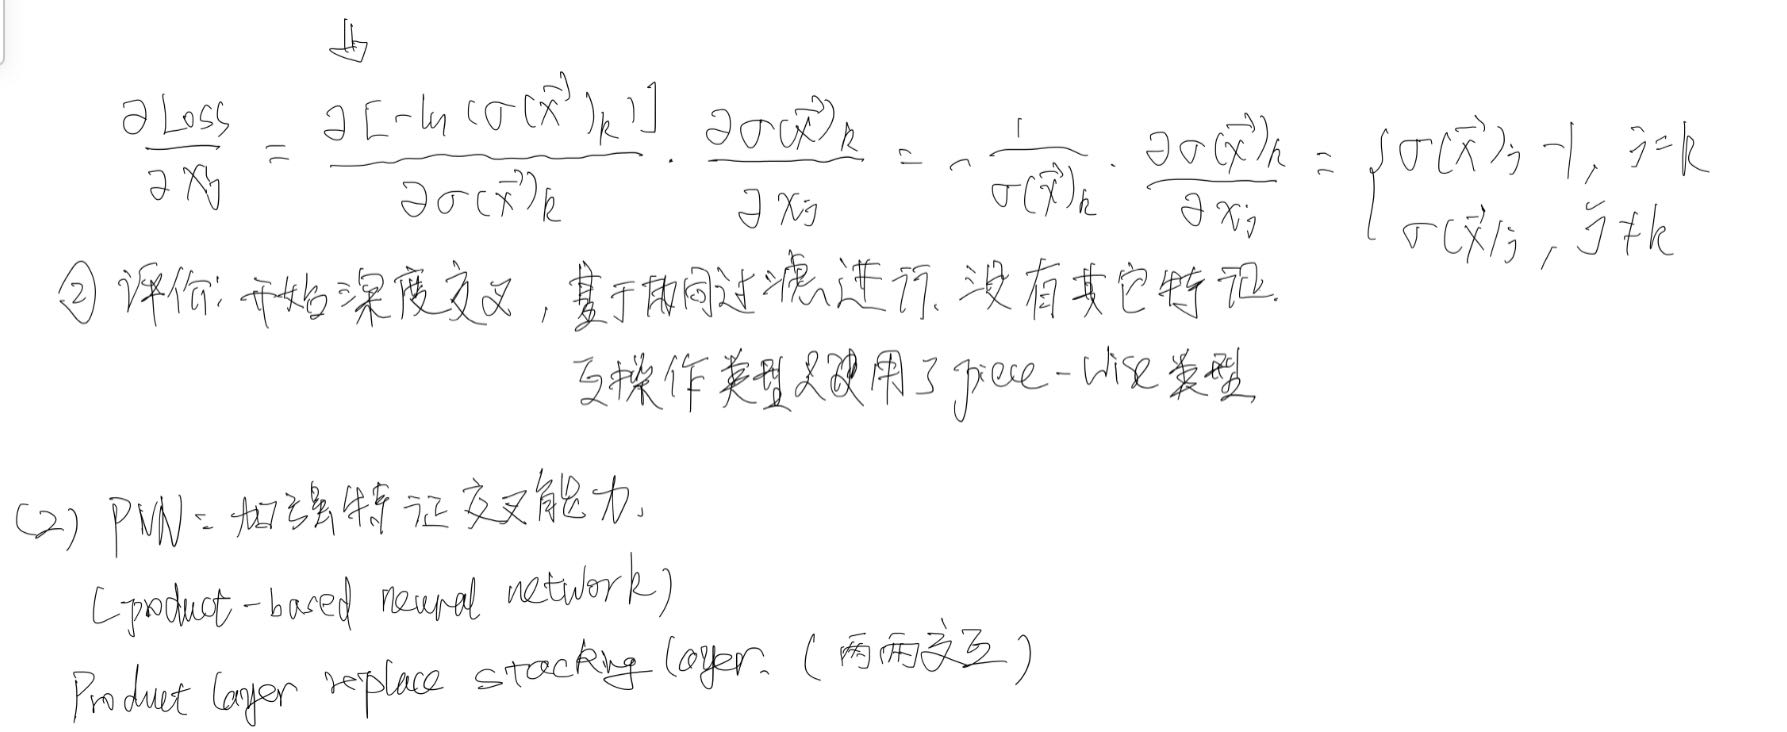 ⇓
∂Loss/∂xj = ∂[-ln(σ(x⃗)k)]/∂σ(x⃗)k · ∂σ(x⃗)k/∂xj = -1/σ(x⃗)k · ∂σ(x⃗)k/∂xj = { σ(x⃗)j -1, j=k
σ(x⃗)j, j≠k
② 评价: 开始深度交叉, 基于协同过滤进行. 没有其它特征.
互操作类型又使用了piece-wise类型
(2) PNN: 加强特征交叉能力.
(product-based neural network)
Product layer replace stacking layer. (两两交互)